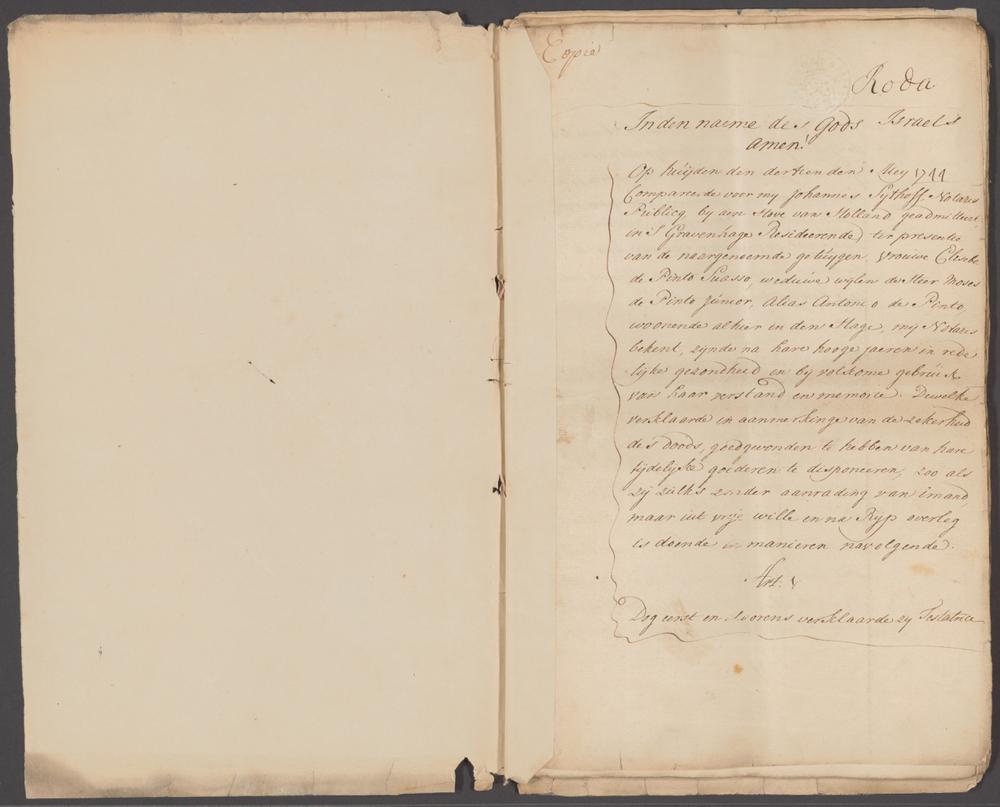 Copie
Roda
In den naeme des Gods Israels
amen!
Op huijden den dertienden Meij 1744
Compareerde voor mij Johannes Sythoff Notaris
Publicq, bij den Hove van Holland geadmitteert,
in 's Gravenhage Resideerende, ter presentie
van de naergenoemde getuijgen, Vrouwe
de Pinto Suasso, weduwe wijlen de Heer Moses
de Pinto Junior, Alias Antonio de Pinto,
woonende alhier in den Hage, mij Notaris
bekent, zijnde na hare hooge jaeren in rede
lijke gezondheid en bij volkome gebruik
van haar verstand en memorie. Dewelke
verklaarde in aanmerkinge van de zekerheid
des doods, goedgevonden te hebben van hare
tijdelijke goederen te disponeeren, zoo als
zij zulks zonder aanrading van imand,
maar uit vrije wille en na Rijp overleg
is doende in manieren navolgende.
Art:
Dog eerst en voorens verklaarde zij Testatrice